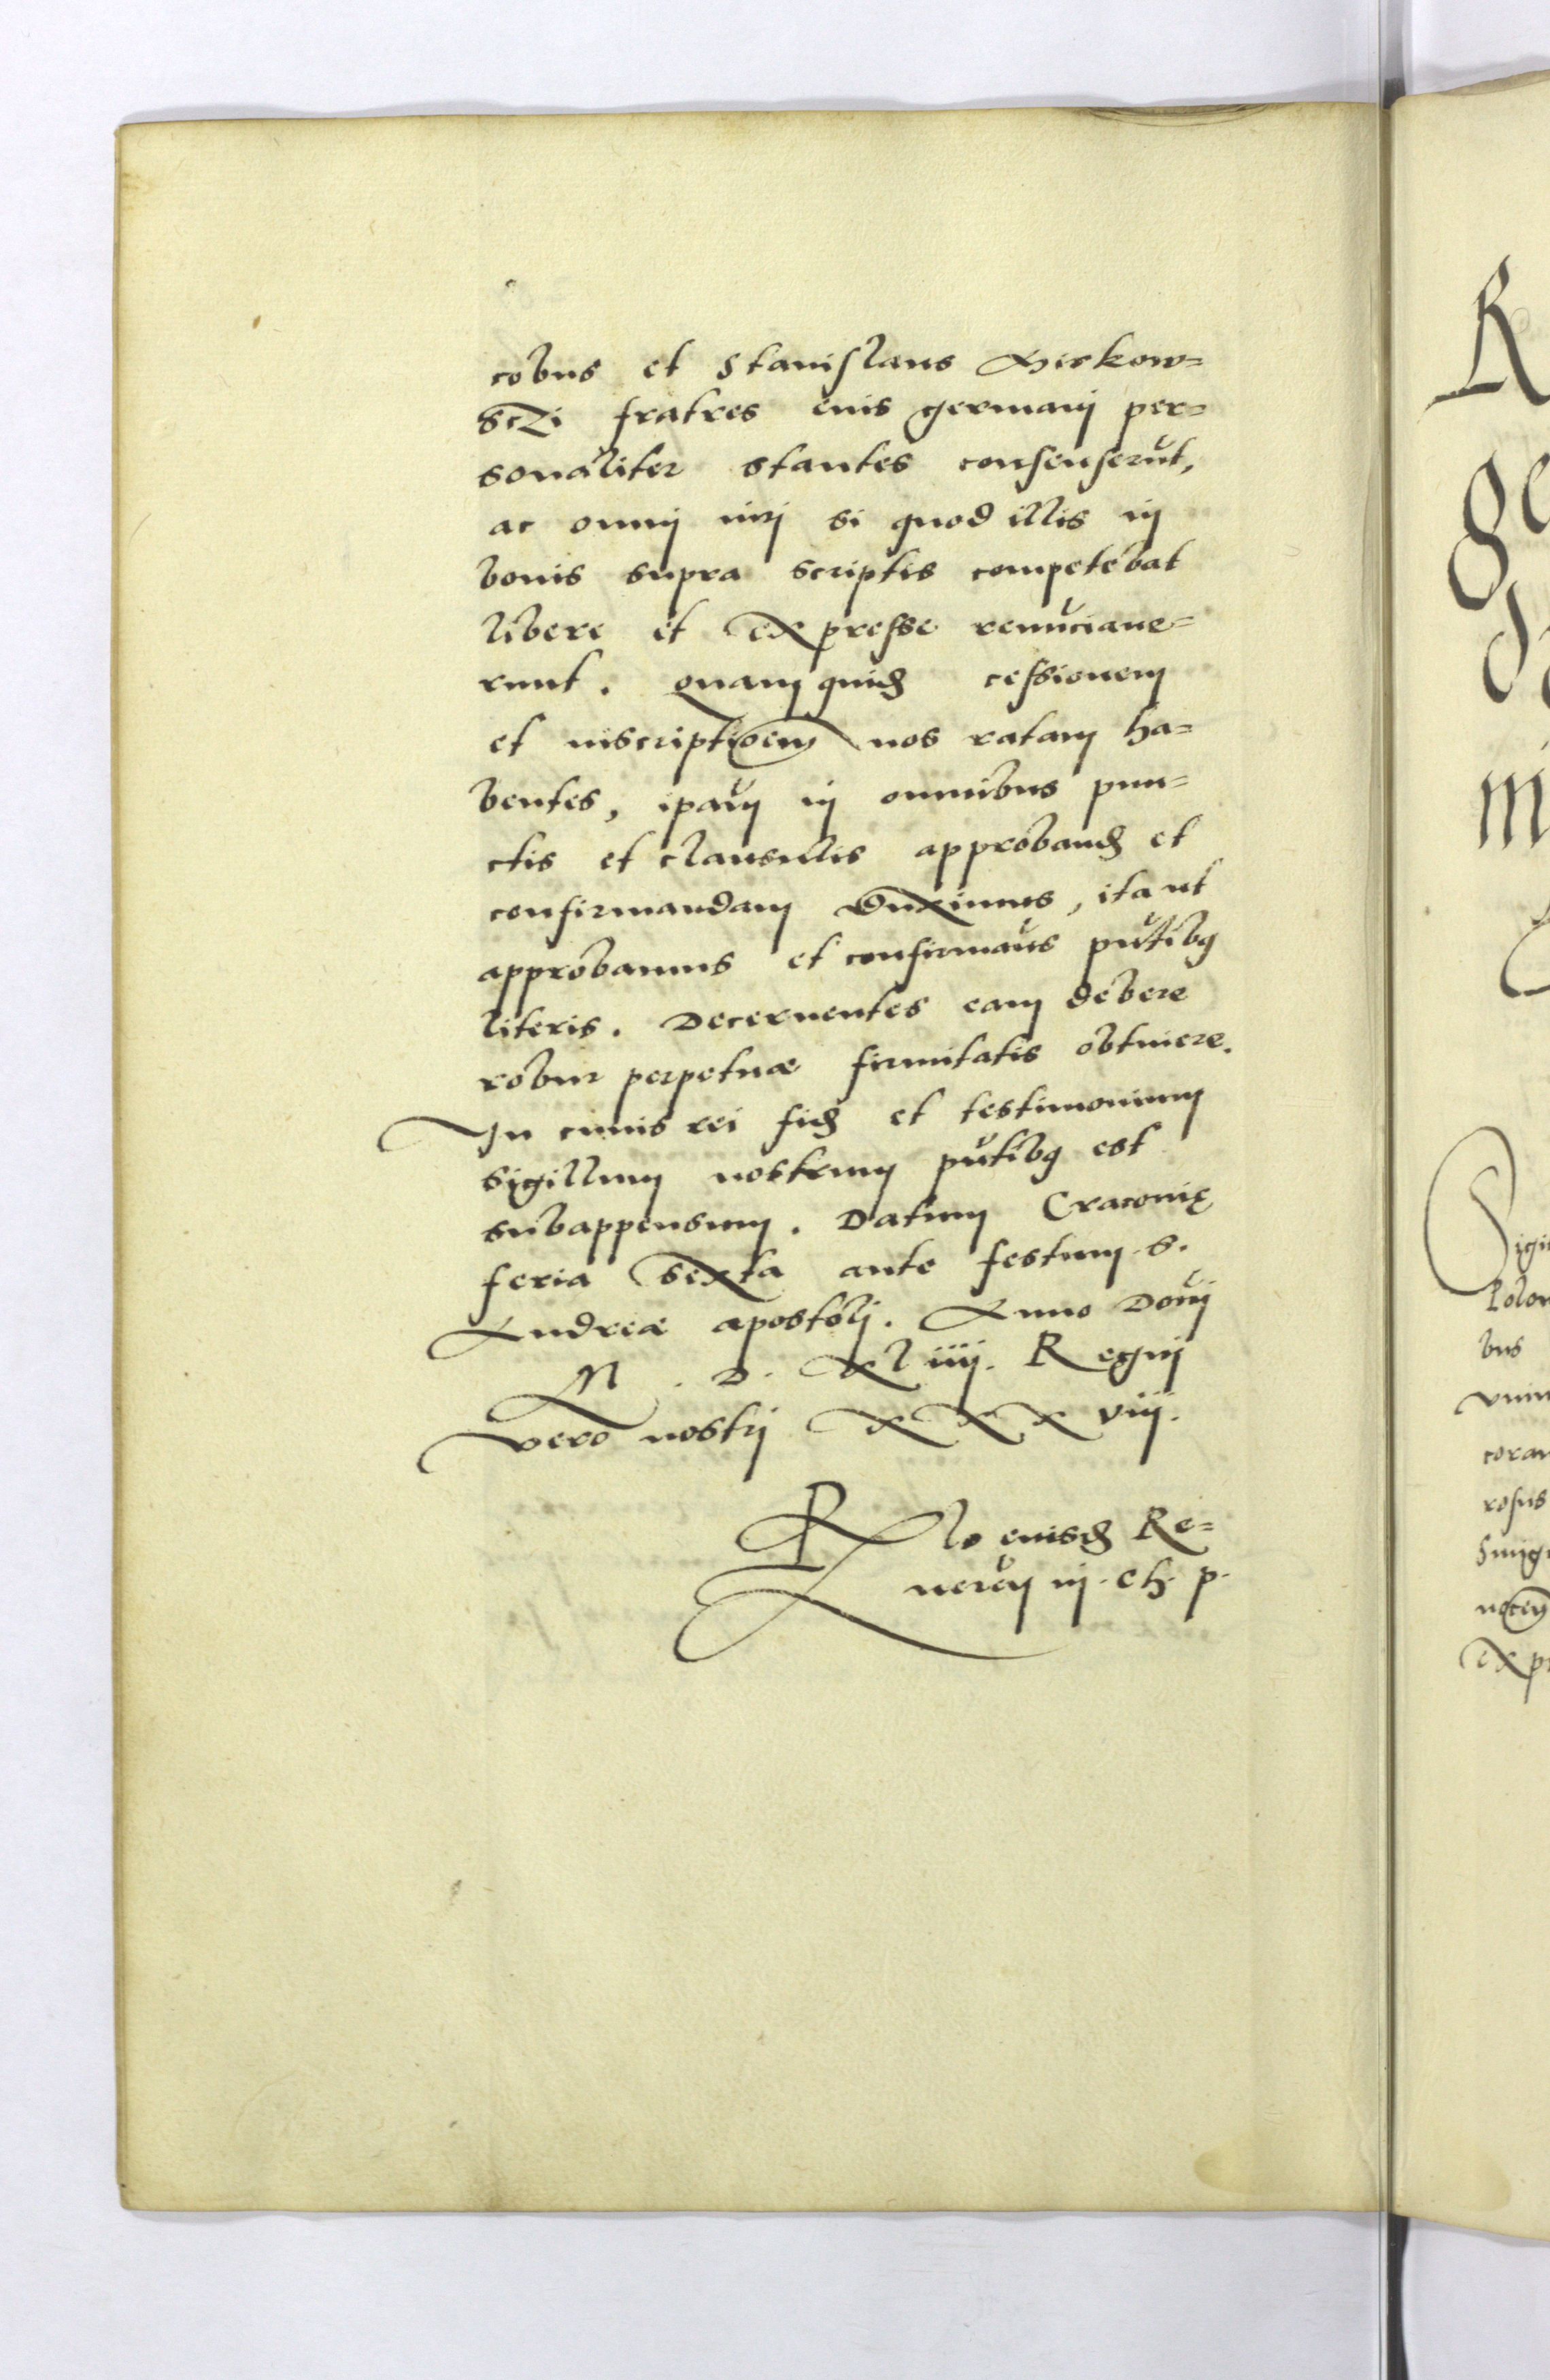 cobus et Stanislaus Mirkow=
sczi fratres eius germanij per=
sonaliter stantes consenserūt,
ac omnij iurj si quod illis in
bonis supra scriptis competebat
libere et expresse renūciaue=
runt. Quam quidē cessionem
et inscriptioem nos ratam ha=
bentes, ipam in omnibus pun=
ctis et clausulis approbandā et
confirmandam duximus, ita ut
approbamus et confirmams pntibq
literis. Decernentes eam debere
robur perpetuæ firmitatis obtinere.
In cuius rei fidē et testimonium
sigillum nostrum pntibq est
subappensum. Datum Cracouię
feria sexta ante festum S.
Andreæ apostolj. Anno Domj
M. D. Xliiij. Regnj
vero nostrj XXXviij.
Rlo eiusdē Re=
uerēn in. Ch. p.
R
ge
m
Sigis
Polon
bus
vniu
coram
rosus
Smig
nocen
expr